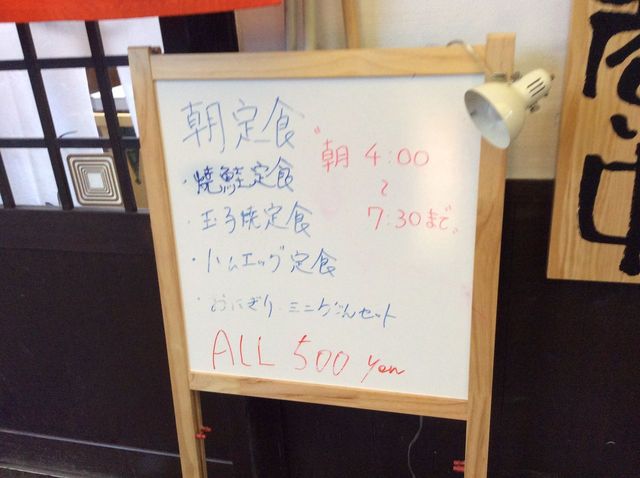 朝定食
"朝 4:00
~
7:30まで"
・焼鮭定食
・玉子焼定食
・ハムエッグ定食
・おにぎり・ミニうどんセット
ALL 500 Yen